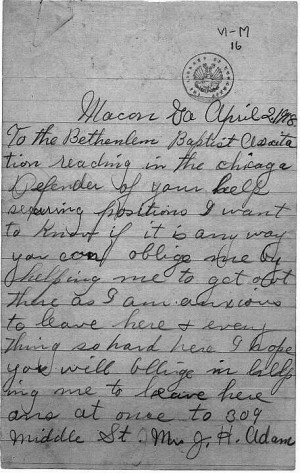 VI-M
16
Macon Ga April 2, 1918
To the Bethenlem Baptist Asocita
tion reading in the chicaga
Defender of your help
securing positions I want
to know if it is any way
you can oblige me by
helping me to get out
there as I am anxious
to leave here & every
thing so hard here I hope
you will oblige in help
ing me to leave here
ans at once to 309
Middle St. Mrs J. H. Adams